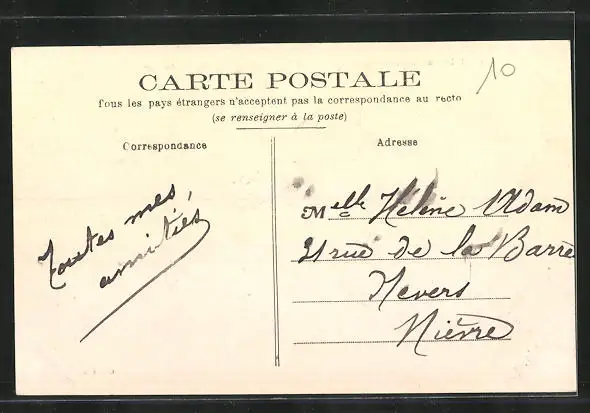 10
CARTE POSTALE
Tous les pays étrangers n'acceptent pas la correspondance au recto
(se renseigner à la poste)
Correspondance
Adresse
Toutes mes
amitiés
Melle Hélène Adam
21 rue de la Barre
Nevers
Nièvre